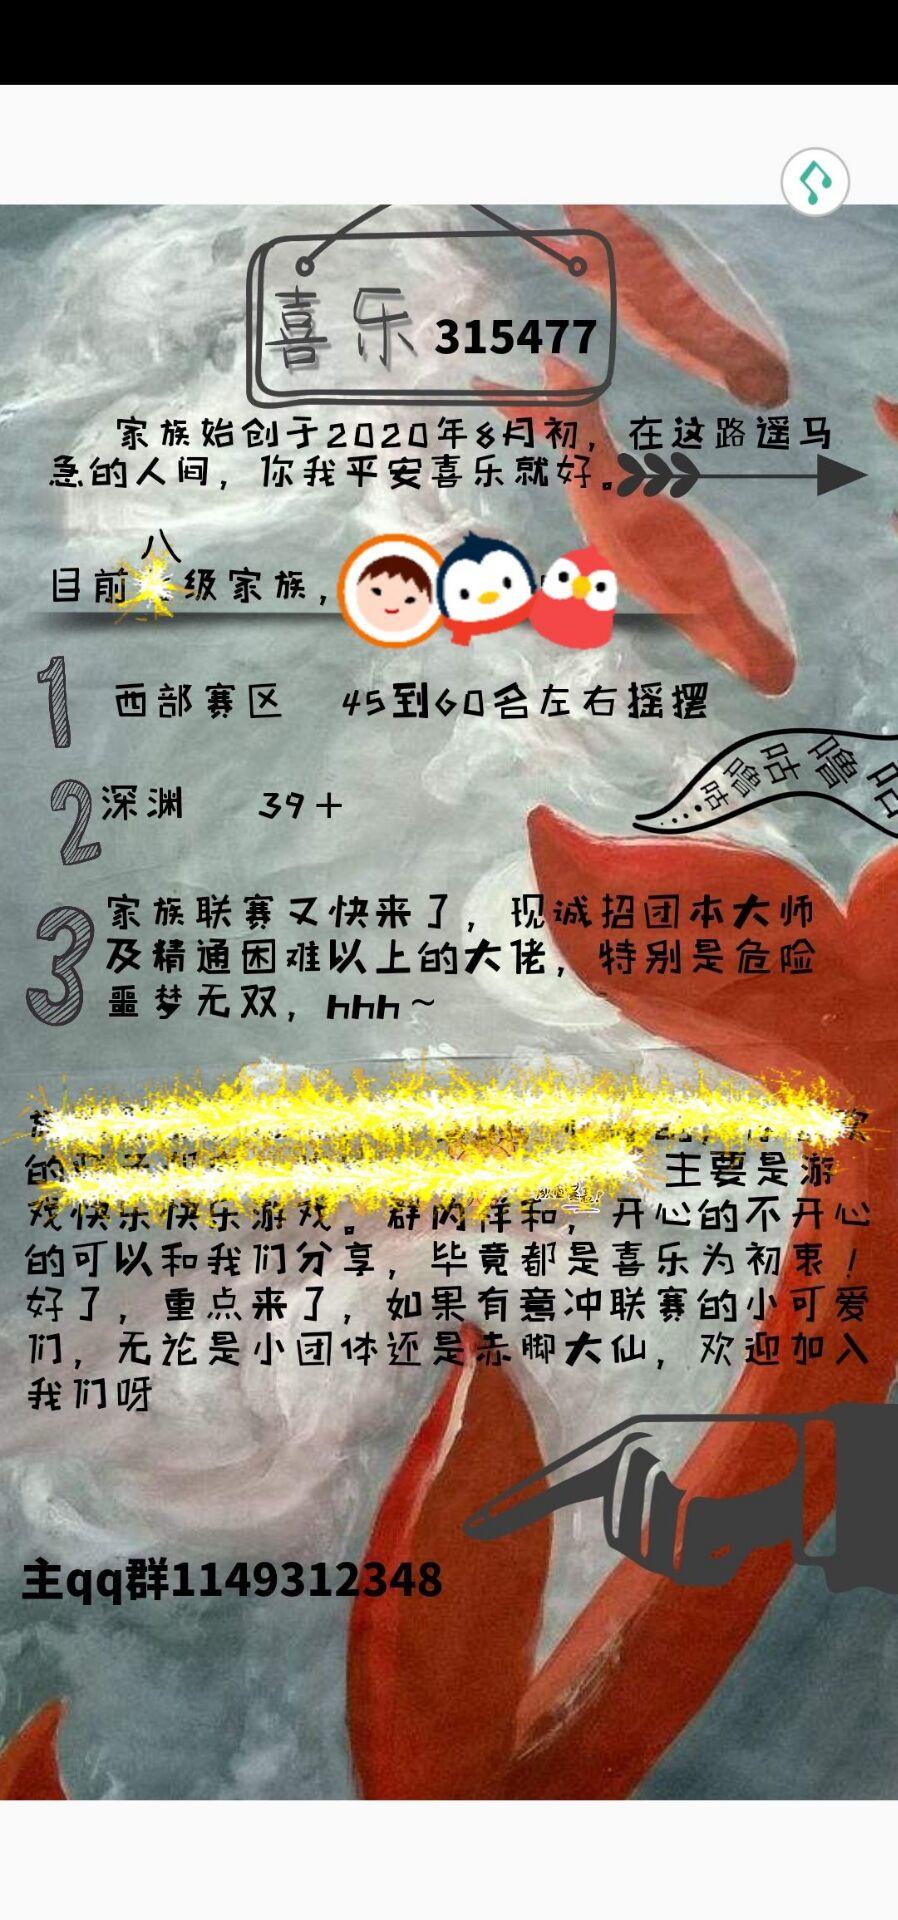 喜乐 315477
家族始创于2020年8月初，在这路遥马
急的人间，你我平安喜乐就好。
八
目前 级家族，
1 西部赛区 45到60名左右摇摆
咕噜咕噜咕
2 深渊 39+
3 家族联赛又快来了，现诚招团本大师
及精通困难以上的大佬，特别是危险
噩梦无双，hhh~
的 主要是游
戏快乐快乐游戏。群内祥和，开心的不开心
的可以和我们分享，毕竟都是喜乐为初衷！
好了，重点来了，如果有意冲联赛的小可爱
们，无论是小团体还是赤脚大仙，欢迎加入
我们呀
主qq群1149312348